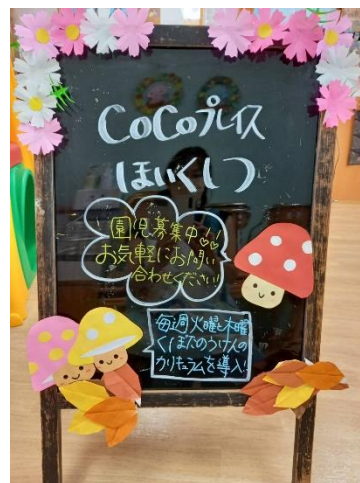 CoCoプレイス
ほいくしつ
園児募集中!!♡♡
お気軽にお問い
合わせください!
毎週火曜と木曜
くぼたのうけんの
カリキュラムを導入!